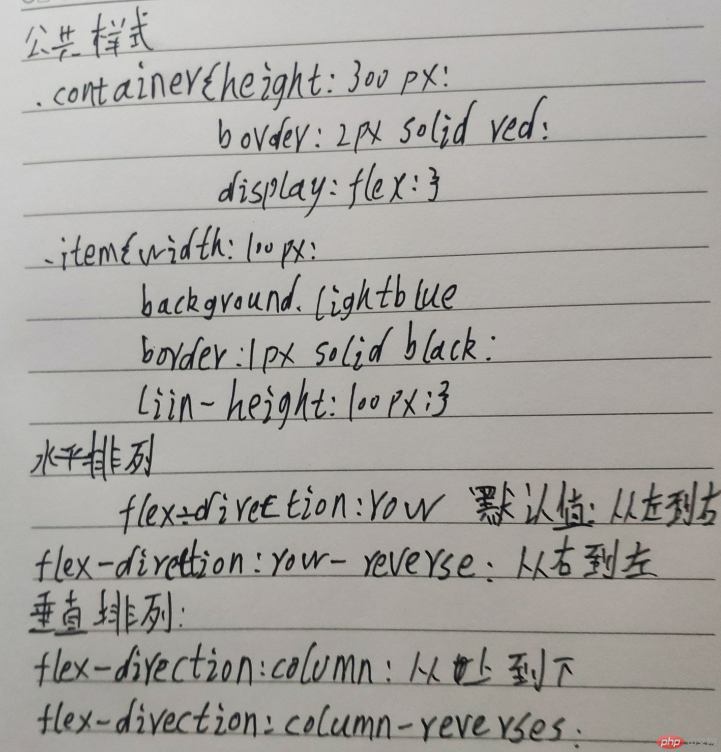 公共样式
.container{height: 300 px:
border: 2px solid red:
display: flex:}
.item{width: 100px:
background. lightblue
border:1px solid black:
liin-height: 100px:}
水平排列
flex-direction:row 默认值: 从左到右
flex-direttion:row-reverse: 从右到左
垂直排列:
flex-direction:column: 从上到下
flex-direction: column-reverses:
php